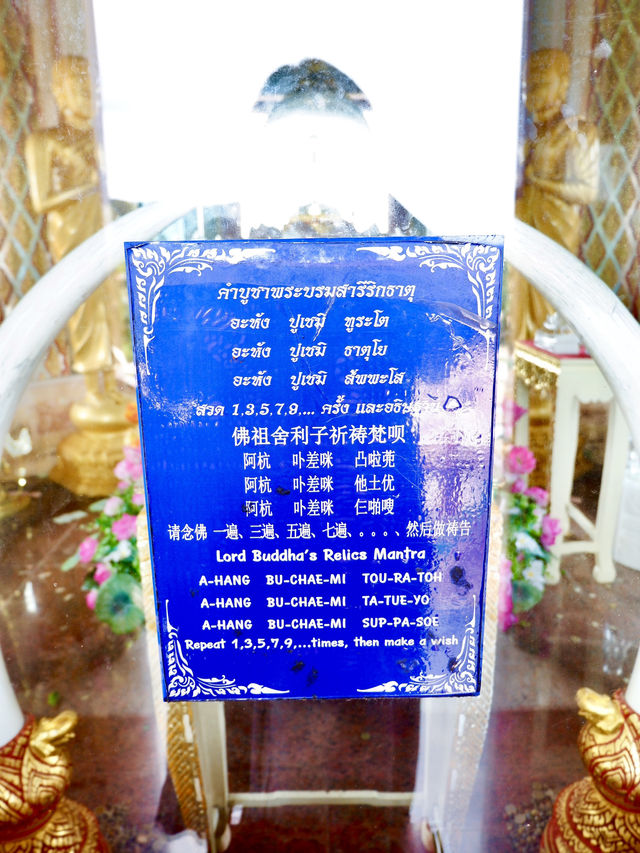 คำบูชาพระบรมสารีริกธาตุ
อะหัง ปูเชมิ ทูระโต
อะหัง ปูเชมิ ธาตุโย
อะหัง ปูเชมิ สัพพะโส
สวด 1,3,5,7,9,... ครั้ง และอธิษฐาน
佛祖舍利子祈祷梵呗
阿杭 卟差咪 凸啦蔸
阿杭 卟差咪 他土优
阿杭 卟差咪 仨啪嗖
请念佛 一遍、三遍、五遍、七遍、。。。、然后做祷告
Lord Buddha's Relics Mantra
A-HANG BU-CHAE-MI TOU-RA-TOH
A-HANG BU-CHAE-MI TA-TUE-YO
A-HANG BU-CHAE-MI SUP-PA-SOE
Repeat 1,3,5,7,9,...times, then make a wish